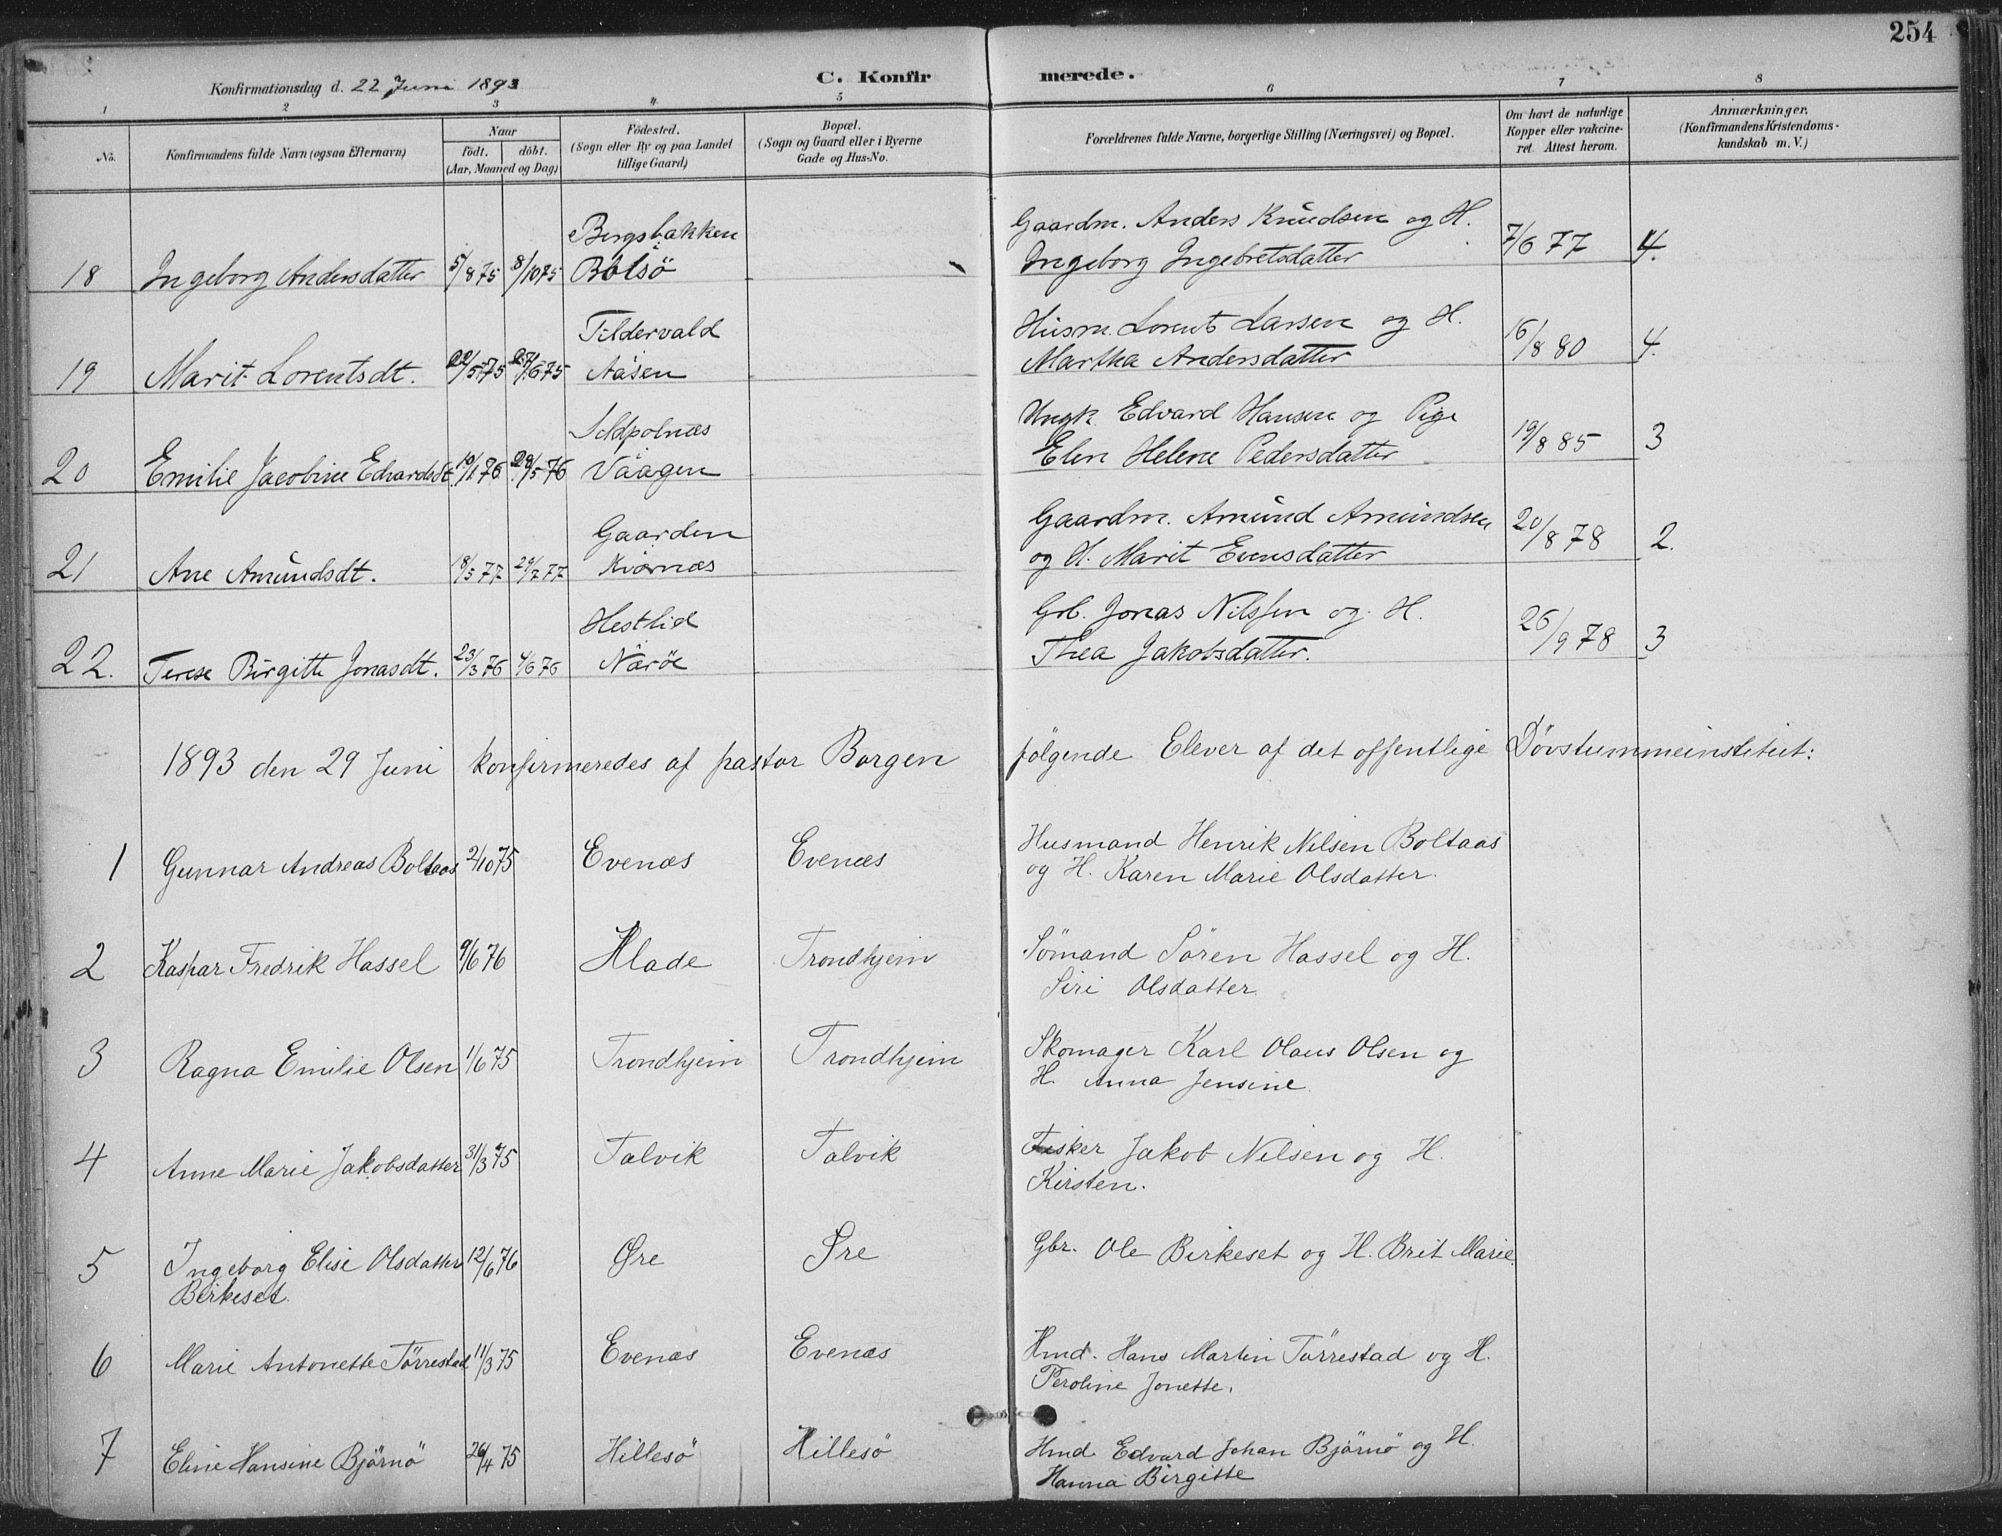 254
Konfirmationsdag d. 22 Juni 1893
C. Konfirmerede.
1 2 3 4 5 6 7 8
No.
Konfirmandens fulde Navn (ogsaa Efternavn)
Naar
födt. döbt.
(Aar, Maaned og Dag)
Födested.
(Sogn eller By og paa Landet
tillige Gaard)
Bopæl.
(Sogn og Gaard eller i Byerne
Gade og Hus-No.
Forældrenes fulde Navne, borgerlige Stilling (Næringsvei) og Bopæl.
Om havt de naturlige
Kopper eller vakcine-
ret. Attest herom.
Anmærkninger.
(Konfirmandens Kristendoms-
kundskab m. V.)
Bergsbakken Gaardm. Anders Knudsen og H.
18 Ingeborg Andersdatter 5/8 75 8/10 75 Bolsö Ingeborg Ingebretsdatter 7/6 77 4.
Tildervald Husm. Lorents Larsen og H.
19 Marit Lorentsdt. Aåsen Martha Andersdatter 16/8 80 4.
Ungk. Edvard Hansen og Pige
20 Emilie Jacobine Edvardsdt. Vaagen Elen Helene Pedersdatter 19/8 85 3
Gaarden Gaardm. Amund Amundsen
21 Ane Amundsdt. 18/5 77 29/7 77 Kiörnæs og H. Marit Evensdatter 20/8 78 2.
Hestlid Grb. Jonas Nilssen og H.
22. Terese Birgitte Jonasdt. 23/3 76 4/6 76 Næröe Thea Jakobsdatter. 26/9 78 3
1893 den 29 Juni konfirmeredes af pastor Borgen følgende Elever af det offentlige Døvstummeinstitut:
Husmand Henrik Nilsen Boltaas
1 Gunnar Andreas Boltaas 2/10 75 Evenæs Evenæs og H. Karen Marie Olsdatter.
2 Kaspar Fredrik Hassel 9/6 76 Hlade Trondhjem Sømand Søren Hassel og H.
Siri Olsdatter
3 Ragna Emilie Olsen 1/6 75 Trondhjem Trondhjem Skomager Karl Olaus Olsen og
H. Anna Jensine.
4 Anne Marie Jakobsdatter 31/3 75 Talvik Talvik Fisker Jakob Nilsen og H.
Kirsten.
5 Ingeborg Elise Olsdatter 12/6 76 Øre Øre Gbr. Ole Birkeset og H. Brit Marie.
Birkeset.
6 Marie Antonette Tørrestad 11/3 75 Evenæs Evenæs Hmd. Hans Martin Tørrestad og H.
Peroline Jonette.
7 Eline Hansine Bjørnø 26/4 75 Hillesö Hillesö Hmd. Edvard Johan Bjørnø og H.
Hanna Birgitte